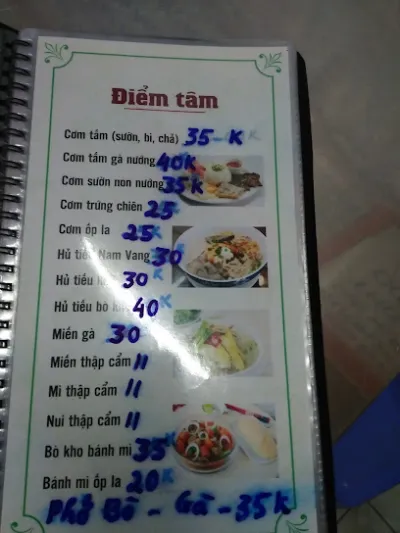 Điểm tâm
Cơm tấm (sườn, bì, chả) 35-K
Cơm tấm gà nướng 40K
Cơm sườn non nướng 35K
Cơm trứng chiên 25K
Cơm ốp la 25K
Hủ tiếu Nam Vang 30K
Hủ tiếu 30K
Hủ tiếu bò 40K
Miến gà 30K
Miến thập cẩm 11
Mì thập cẩm 11
Nui thập cẩm 11
Bò kho bánh mì 35K
Bánh mì ốp la 20K
Phở Bò - Gà - 35K